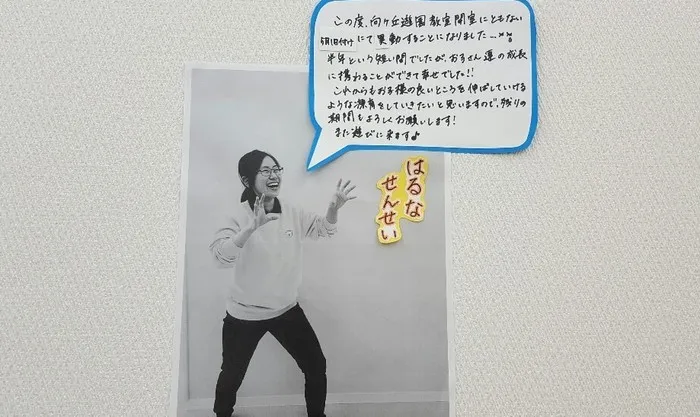 この度、向ヶ丘遊園教室開室にともない
5月1日付けにて異動することになりました...
半年という短い間でしたが、お子さん達の成長
に携わることができて幸せでした!!
これからもお子様の良いところを伸ばしていける
ような療育をしていきたいと思いますので、残りの
期間もよろしくお願いします!
また遊びに来ます♪
はるな
せんせい